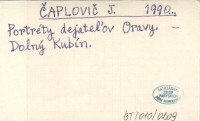 ČAPLOVIČ J. 1990.,
Portréty dejateľov Oravy. –
Dolný Kubín.
BT/010/0209